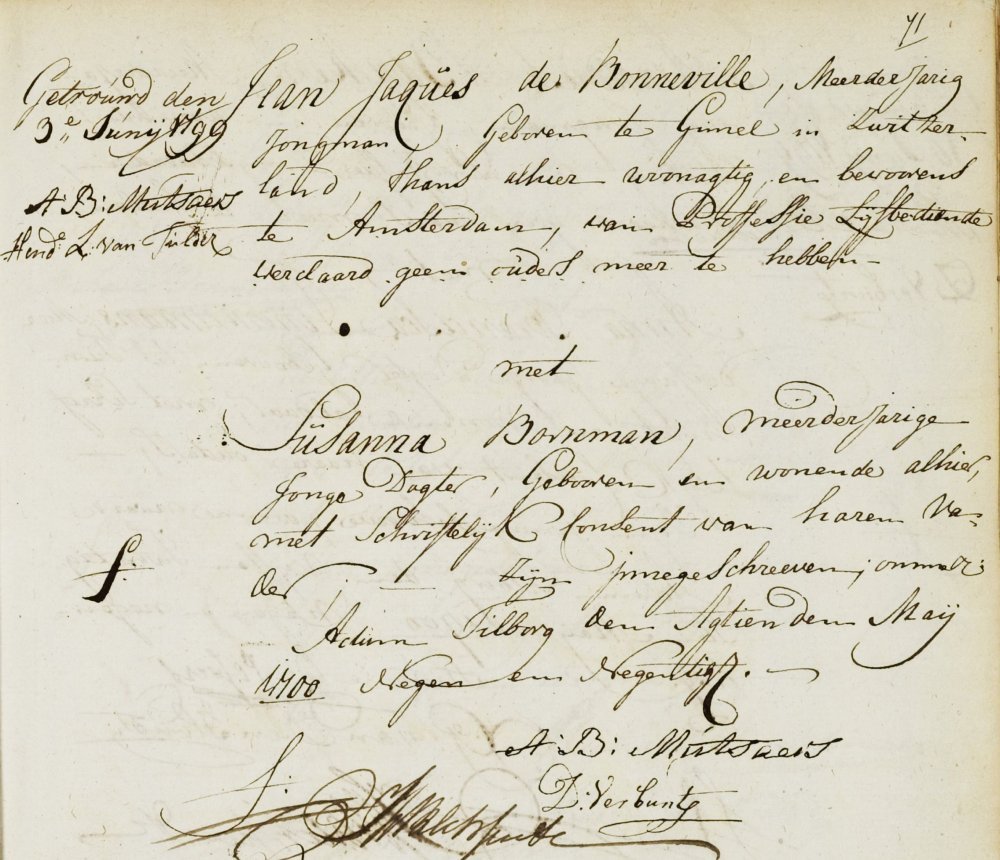 71
Getrouwd den
3e Junij 1799
A: B: Mutsaers
Hend: L. van Tulder
Jean Jaques de Bonneville, Meerderjarig
jongman Geboren te Gimel in Zwitzer-
land, thans alhier woonagtig en bevoorens
te Amsterdam, van Proffessie Lijfbediende
verclaard geen ouders meer te hebben
met
Susanna Bornman, meerderjarige
Jonge Dogter, Gebooren en wonende alhier,
met Schriftelijk Consent van haren Va-
der, Zijn ingeschreeven,
Actum Tilborg den Agtienden Maij
1700 Negen en Negentig.
A: B: Mutsaers
D: Verbunte
f:
f: